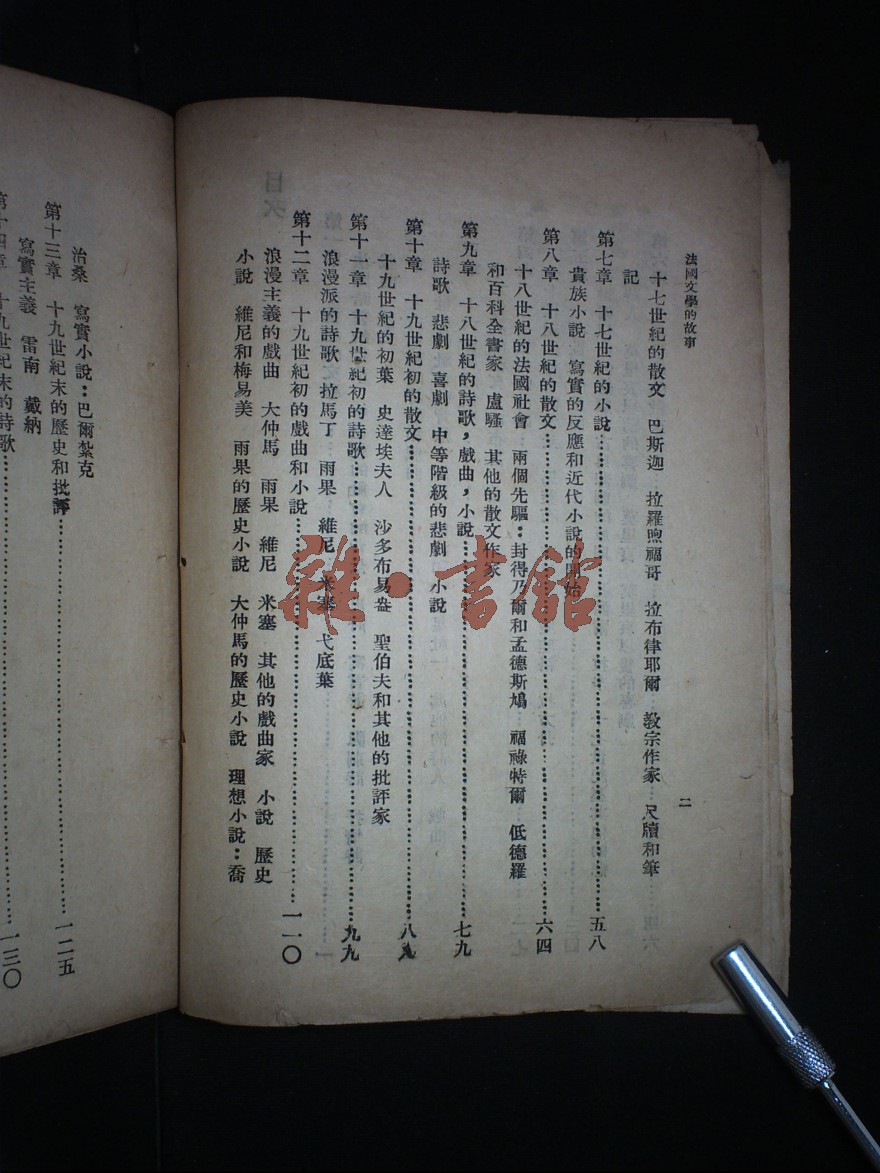 法國文學的故事
二
十七世紀的散文　巴斯迦　拉羅煦福哥　拉布律耶爾　教宗作家　尺牘和筆
記
第七章　十七世紀的小說……五八
貴族小說　寫實的反應和近代小說的開始
第八章　十八世紀的散文……六四
十八世紀的法國社會　兩個先驅：封得乃爾和孟德斯鳩　福祿特爾　低德羅
和百科全書家　盧騷　其他的散文作家
第九章　十八世紀的詩歌，戲曲，小說……七九
詩歌　悲劇　喜劇　中等階級的悲劇　小說
第十章　十九世紀初的散文……八九
十九世紀的初葉　史達埃夫人　沙多布易盎　聖伯夫和其他的批評家
第十一章　十九世紀初的詩歌……九九
浪漫派的詩歌　拉馬丁　雨果　維尼　米塞　弋底葉
第十二章　十九世紀初的戲曲和小說……一一〇
浪漫主義的戲曲　大仲馬　雨果　維尼　米塞　其他的戲曲家　小說　歷史
小說　維尼和梅易美　雨果的歷史小說　大仲馬的歷史小說　理想小說：喬
治桑　寫實小說：巴爾紮克
第十三章　十九世紀末的歷史和批評……一二五
寫實主義　雷南　戴納
第十四章　十九世紀末的詩歌……一三〇
雜·書館